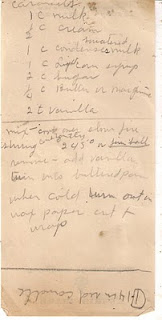 Caramels
1 c milk
1/2 c cream
sweetened
1 c condensed milk
1 c light corn syrup
2 c sugar
1/2 c butter or margarine
2 t vanilla
mix - cook over slow fire
stirring constantly 245° or firm ball
remove - add vanilla
turn onto buttered pan
when cold turn out on
wax paper cut &
wrap